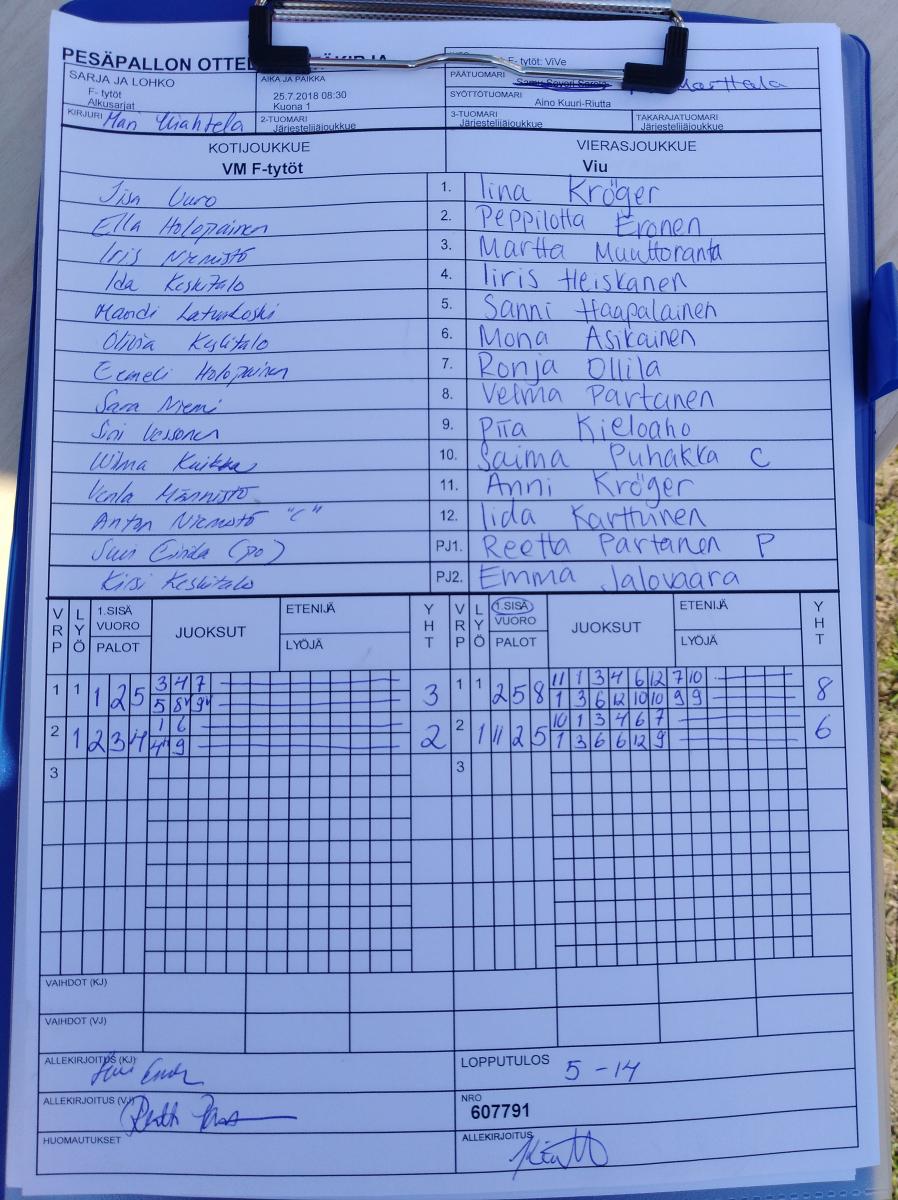 PESÄPALLON OTTE
F- tytöt: ViVe
SARJA JA LOHKO
F- tytöt
Alkusarjat
AIKA JA PAIKKA
25.7.2018 08:30
Kuona 1
PÄÄTUOMARI
Marttala
SYÖTTÖTUOMARI
Aino Kuuri-Riutta
KIRJURI Mari
2-TUOMARI
Järjestelijäjoukkue
3-TUOMARI
Järjestelijäjoukkue
TAKARAJATUOMARI
Järjestelijäjoukkue
KOTIJOUKKUE
VM F-tytöt
VIERASJOUKKUE
Viu
1. Iina Kröger
Ella Holopainen 2. Peppilotta Eronen
Iris Niemistö 3. Martta Muuttoranta
Ida Keskitalo 4. Iiris Heiskanen
5. Sanni Haapalainen
Olivia Keskitalo 6. Mona Asikainen
Eemeli Holopainen 7. Ronja Ollila
Sara Niemi 8. Velma Partanen
9. Piia Kieloaho
Wilma 10. Saima Puhakka C
Venla Männistö 11. Anni Kröger
Anton Niemistö "C" 12. Iida Karttunen
(po) PJ1. Reetta Partanen P
Kirsi Keskitalo PJ2. Emma Jalovaara
VRP LYÖ 1.SISÄ VUORO PALOT JUOKSUT ETENIJÄ LYÖJÄ YHT VRP LYÖ 1.SISÄ VUORO PALOT JUOKSUT ETENIJÄ LYÖJÄ YHT
1 1 1 2 5 3 4 7 3 1 1 2 5 8 11 1 3 4 6 12 7 10 8
5 8 9 1 3 6 12 10 10 9 9
2 1 2 3 4 1 6 2 2 1 11 2 5 10 1 3 4 6 7 6
4 9 1 3 6 6 12 9
3 3
VAIHDOT (KJ)
VAIHDOT (VJ)
ALLEKIRJOITUS (KJ)
LOPPUTULOS 5 - 14
ALLEKIRJOITUS (VJ)
NRO
607791
HUOMAUTUKSET
ALLEKIRJOITUS